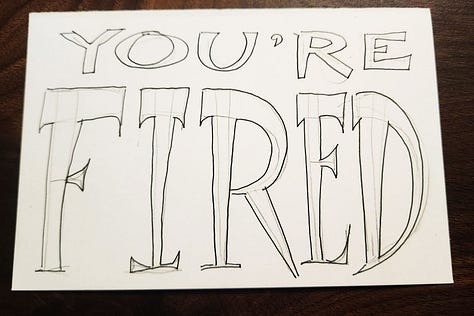 YOU'RE
FIRED